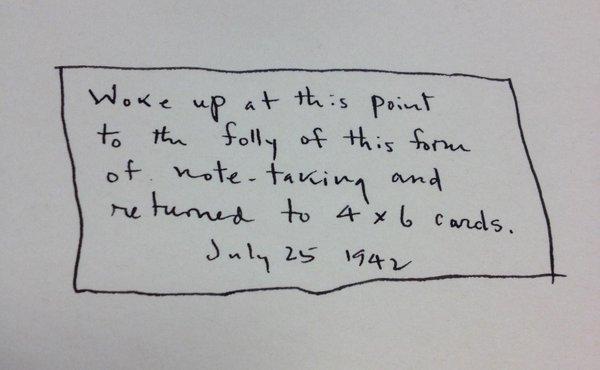 Woke up at this point
to the folly of this form
of note-taking and
returned to 4 x 6 cards.
July 25 1942